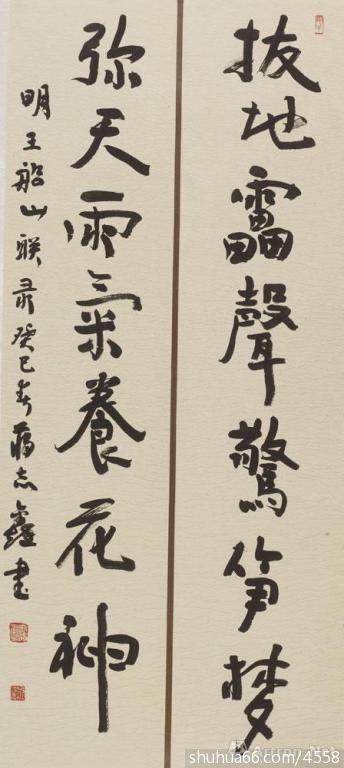 拔地靁聲驚笋梦
弥天雨氣養花神
明王船山联癸巳春蒋志鑫書
shuhua66.com/4558